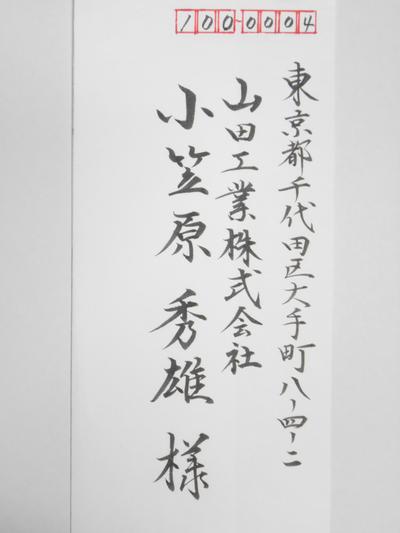 100-0004
東京都千代田区大手町八-四-二
山田工業株式会社
小笠原秀雄様